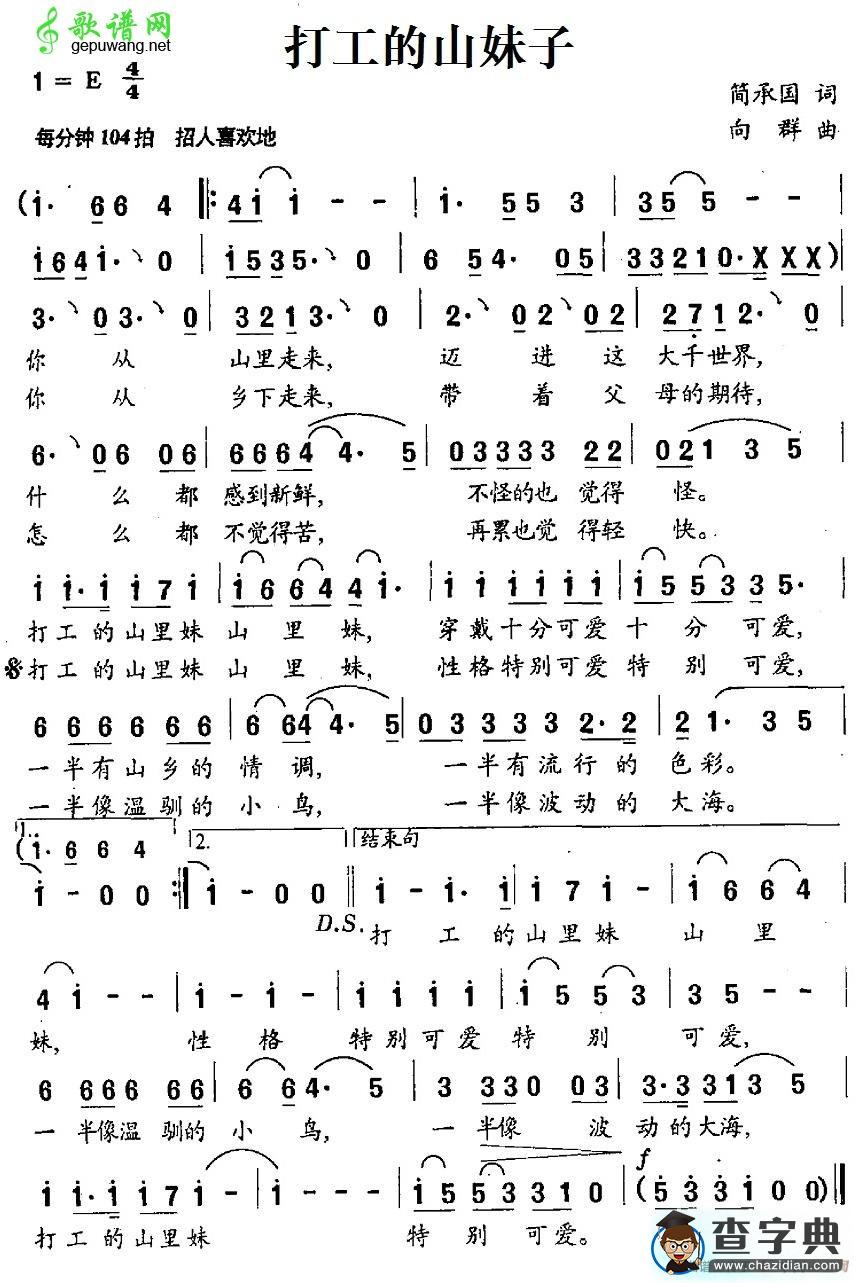 歌谱网
gepuwang.net
打工的山妹子
1 = E 4/4
简承国 词
向 群 曲
每分钟104拍 招人喜欢地
(i· 6 6 4 |: 4 i i - - | i· 5 5 3 | 3 5 5 - -
i 6 4 i· 0 | i 5 3 5· 0 | 6 5 4· 0 5 | 3 3 2 1 0· X X X)
3· 0 3· 0 | 3 2 1 3· 0 | 2· 0 2 0 2 | 2 7 1 2· 0
你 从 山里走来, 迈 进 这 大千世界,
你 从 乡下走来, 带 着 父 母的期待,
6· 0 6 0 6 | 6 6 6 4 4· 5 | 0 3 3 3 3 2 2 | 0 2 1 3 5
什 么 都 感到新鲜, 不怪的也 觉得 怪。
怎 么 都 不觉得苦, 再累也觉 得轻 快。
i i· i i 7 i | i 6 6 4 4 i· | i i i i i i | i 5 5 3 3 5·
打 工 的 山里妹 山 里 妹, 穿戴十分可爱 十 分 可爱,
打 工 的 山里妹 山 里 妹, 性格特别可爱 特 别 可爱,
6 6 6 6 6 6 | 6 6 4 4· 5 | 0 3 3 3 3 2· 2 | 2 1· 3 5
一半有山乡的 情 调, 一半有流行的 色彩。
一半像温驯的 小 鸟, 一半像波动的 大海。
1.
(i· 6 6 4
2.
结束句
i - 0 0 :| i - 0 0 || i - i· i | i 7 i - | i 6 6 4
D.S.
打 工 的 山里妹 山 里
4 i - - | i - i - | i i i i | i 5 5 3 | 3 5 - -
妹, 性 格 特别可爱 特 别 可爱,
6 6 6 6 6 6 | 6 6 4· 5 | 3 3 3 0 0 3 | 3· 3 3 1 3 5
一 半像温 驯的 小 鸟, 一 半像 波 动的大海,
f
i i· i i 7 i | i - | i 5 5 3 3 1 0 | (5 3 3 1 0 0)
打 工 的 山里妹 特 别 可爱。
查字典
www.chazidian.com